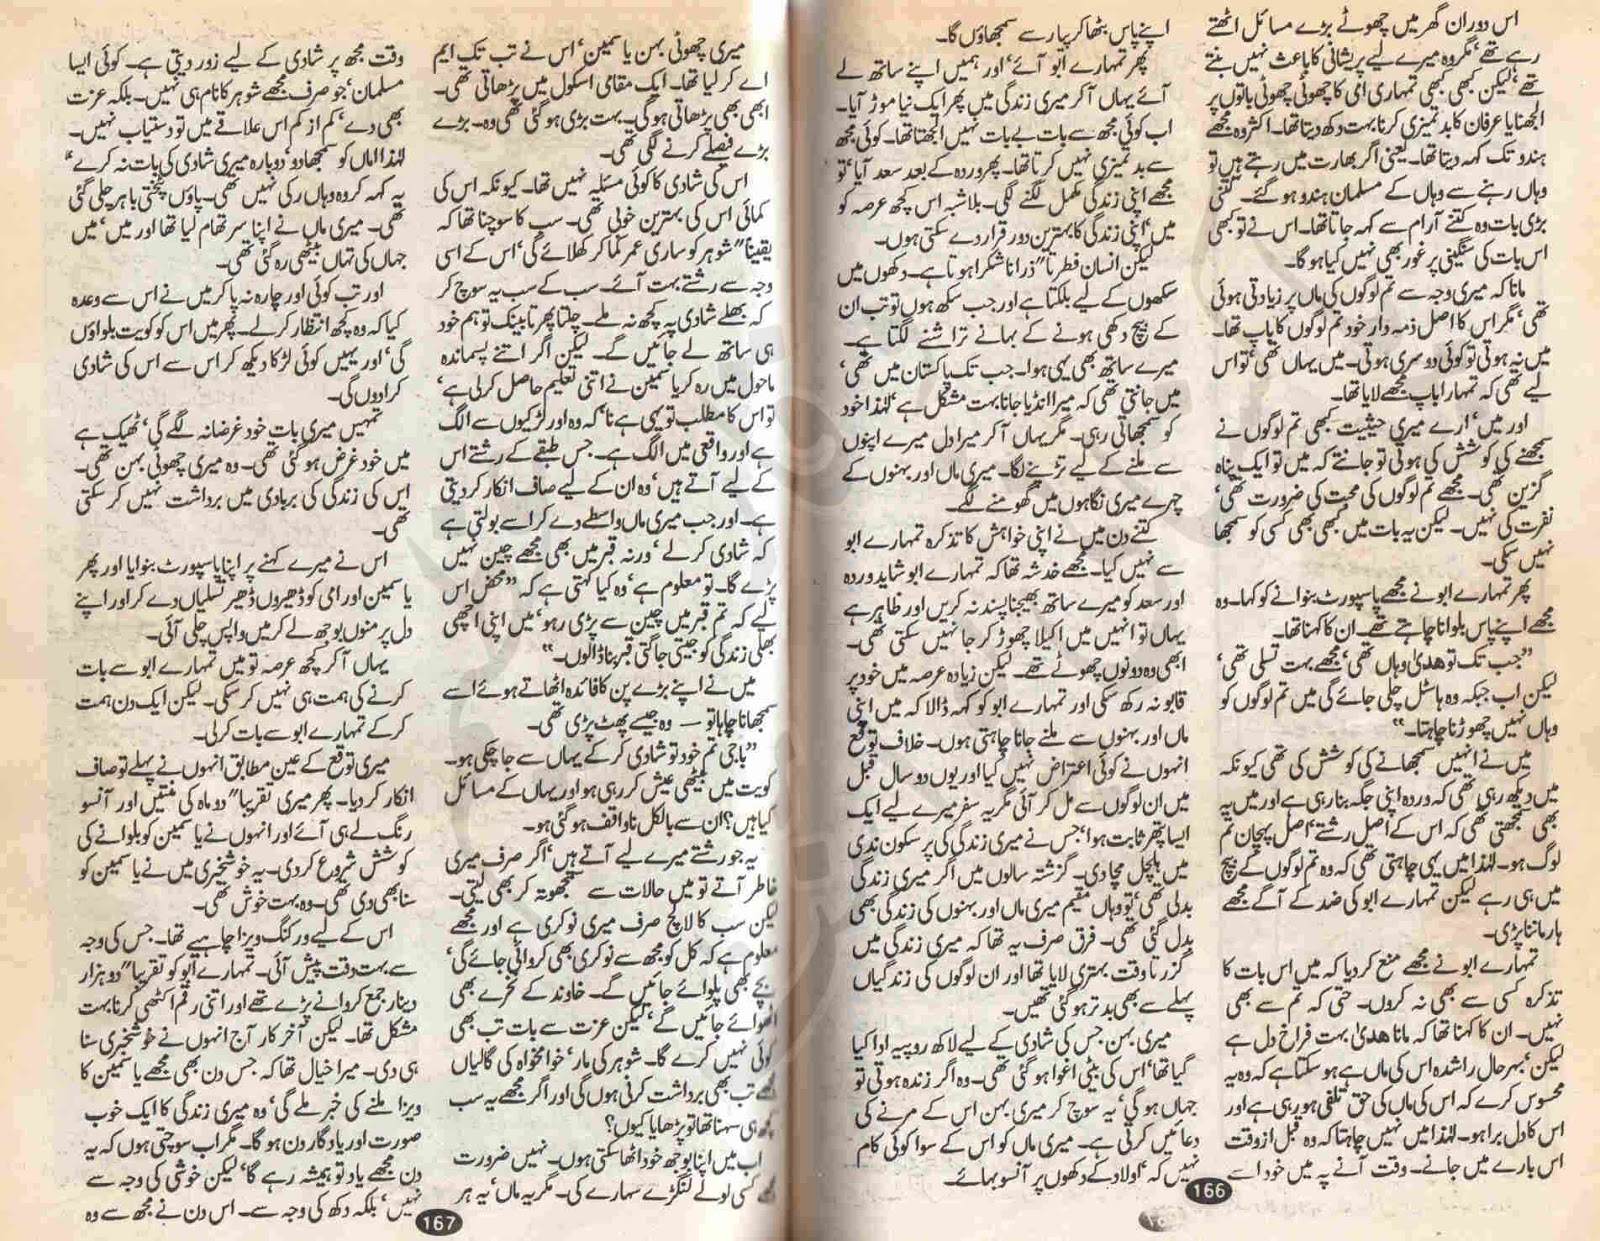 اس دوران گھر میں چھوٹے بڑے مسائل اٹھتے
رہے تھے، مگر وہ میرے لیے پریشانی کا باعث نہیں بنتے
تھے، لیکن کبھی کبھی تمہاری امی کا چھوٹی چھوٹی باتوں پر
الجھنا یا عرفان کا بدتمیزی کرنا بہت دکھ دیتا تھا۔ اکثر وہ مجھے
ہندو تک کہہ دیتا تھا۔ یعنی اگر بھارت میں رہتے ہیں تو
وہاں رہنے سے وہاں کے مسلمان ہندو ہو گئے۔ کتنی
بڑی بات وہ کتنے آرام سے کہہ جاتا تھا۔ اس نے تو کبھی
اس بات کی سنگینی پر غور بھی نہیں کیا ہو گا۔
مانا کہ میری وجہ سے تم لوگوں کی ماں پر زیادتی ہوئی
تھی، مگر اس کا اصل ذمہ دار خود تم لوگوں کا باپ تھا۔
میں نہ ہوتی تو کوئی دوسری ہوتی۔ میں یہاں تھی، تو اس
لیے تھی کہ تمہارا باپ مجھے لایا تھا۔
اور میں، ارے میری حیثیت کبھی تم لوگوں نے
سمجھنے کی کوشش کی ہوتی تو جانتے کہ میں تو ایک پناہ
گزین تھی۔ مجھے تم لوگوں کی محبت کی ضرورت تھی،
نفرت کی نہیں۔ لیکن یہ بات میں کبھی بھی کسی کو سمجھا
نہیں سکی۔
پھر تمہارے ابو نے مجھے پاسپورٹ بنوانے کو کہا۔ وہ
مجھے اپنے پاس بلوانا چاہتے تھے۔ ان کا کہنا تھا۔
”جب تک تو ھدیٰ وہاں تھی، مجھے بہت تسلی تھی،
لیکن اب جبکہ وہ ہاسٹل چلی جائے گی میں تم لوگوں کو
وہاں نہیں چھوڑنا چاہتا۔“
میں نے انہیں سمجھانے کی کوشش کی تھی کیونکہ
میں دیکھ رہی تھی کہ وردہ اپنی جگہ بنا رہی ہے اور میں یہ
بھی سمجھتی تھی کہ اس کے اصل رشتے، اصل پہچان تم
لوگ ہو۔ لہٰذا میں یہی چاہتی تھی کہ وہ تم لوگوں کے بیچ
میں ہی رہے لیکن تمہارے ابو کی ضد کے آگے مجھے
ہار ماننا پڑی۔
تمہارے ابو نے مجھے منع کر دیا کہ میں اس بات کا
تذکرہ کسی سے بھی نہ کروں۔ حتیٰ کہ تم سے بھی
نہیں۔ ان کا کہنا تھا کہ مانا ھدیٰ بہت فراخ دل ہے
لیکن، بہرحال راشدہ اس کی ماں ہے ہو سکتا ہے کہ وہ یہ
محسوس کرے کہ اس کی ماں کی حق تلفی ہو رہی ہے اور
اس کا دل برا ہو۔ لہٰذا میں نہیں چاہتا کہ وہ قبل از وقت
اس بارے میں جانے۔ وقت آنے پہ میں خود اسے
اپنے پاس بٹھا کر پیار سے سمجھاؤں گا۔
پھر تمہارے ابو آئے، اور ہمیں اپنے ساتھ لے
آئے یہاں آ کر میری زندگی میں پھر ایک نیا موڑ آیا۔
اب کوئی مجھ سے بات بے بات نہیں الجھتا تھا۔ کوئی مجھ
سے بدتمیزی نہیں کرتا تھا۔ پھر وردہ کے بعد سعد آیا، تو
مجھے اپنی زندگی مکمل لگنے لگی۔ بلاشبہ اس کچھ عرصہ کو
میں، اپنی زندگی کا بہترین دور قرار دے سکتی ہوں۔
لیکن انسان فطرتاً ذرا ناشکرا ہوتا ہے۔ دکھوں میں
سکھوں کے لیے بلکتا ہے اور جب سکھ ہوں تو تب ان
کے بیچ دکھی ہونے کے بہانے تراشنے لگتا ہے۔
میرے ساتھ بھی یہی ہوا۔ جب تک پاکستان میں تھی،
میں جانتی تھی کہ میرا انڈیا جانا بہت مشکل ہے، لہٰذا خود
کو سمجھاتی رہی۔ مگر یہاں آ کر میرا دل میرے اپنوں
سے ملنے کے لیے تڑپنے لگا۔ میری ماں اور بہنوں کے
چہرے میری نگاہوں میں گھومنے لگے۔
کتنے دن میں نے اپنی خواہش کا تذکرہ تمہارے ابو
سے نہیں کیا۔ مجھے خدشہ تھا کہ تمہارے ابو شاید وردہ
اور سعد کو میرے ساتھ بھیجنا پسند نہ کریں اور ظاہر ہے
یہاں تو انہیں میں اکیلا چھوڑ کر جا نہیں سکتی تھی۔
ابھی وہ دونوں چھوٹے تھے۔ لیکن زیادہ عرصہ میں خود پر
قابو نہ رکھ سکی اور تمہارے ابو کو کہہ ڈالا کہ میں اپنی
ماں اور بہنوں سے ملنے جانا چاہتی ہوں۔ خلاف توقع
انہوں نے کوئی اعتراض نہیں کیا اور یوں دو سال قبل
میں ان لوگوں سے مل کر آئی مگر یہ سفر میرے لیے ایک
ایسا پتھر ثابت ہوا، جس نے میری زندگی کی پرسکون ندی
میں ہلچل مچا دی۔ گزشتہ سالوں میں اگر میری زندگی
بدلی تھی، تو وہاں مقیم میری ماں اور بہنوں کی زندگی بھی
بدل گئی تھی۔ فرق صرف یہ تھا کہ میری زندگی میں
گزرتا وقت بہتری لایا تھا اور ان لوگوں کی زندگیاں
پہلے سے بھی بدتر ہو گئی تھیں۔
میری بہن جس کی شادی کے لیے لاکھ روپیہ ادا کیا
گیا تھا، اس کی بیٹی اغوا ہو گئی تھی۔ وہ اگر زندہ ہوتی تو
جہاں ہو گی، یہ سوچ کر میری بہن اس کے مرنے کی
دعائیں کرتی ہے۔ میری ماں کو اس کے سوا کوئی کام
نہیں کہ، اولاد کے دکھوں پر آنسو بہائے۔
166
میری چھوٹی بہن یاسمین، اس نے تب تک ایم
اے کر لیا تھا۔ ایک مقامی اسکول میں پڑھاتی تھی۔
ابھی بھی پڑھاتی ہو گی۔ بہت بڑی ہو گئی تھی وہ۔ بڑے
بڑے فیصلے کرنے لگی تھی۔
اس کی شادی کا کوئی مسئلہ نہیں تھا۔ کیونکہ اس کی
کمائی اس کی بہترین خوبی تھی۔ سب کا سوچنا تھا کہ
یقیناً شوہر کو ساری عمر کما کر کھلائے گی، اس کے اسی
وجہ سے رشتے بہت آئے۔ سب کے سب یہ سوچ کر
کہ بھلے شادی پہ کچھ نہ ملے۔ چلتا پھرتا بینک تو ہم خود
ہی ساتھ لے جائیں گے۔ لیکن اگر اتنے پسماندہ
ماحول میں رہ کر یاسمین نے اتنی تعلیم حاصل کر لی ہے،
تو اس کا مطلب تو یہی ہے نا، کہ وہ اور لڑکیوں سے الگ
ہے اور واقعی میں الگ ہے۔ جس طبقے کے رشتے اس
کے لیے آتے ہیں، وہ ان کے لیے صاف انکار کر دیتی
ہے۔ اور جب میری ماں واسطے دے کر اسے بولتی ہے
کہ شادی کر لے، ورنہ قبر میں بھی مجھے چین نہیں
پڑے گا۔ تو معلوم ہے، وہ کیا کہتی ہے کہ ”محض اس
لیے کہ تم قبر میں چین سے پڑی رہو، میں اپنی اچھی
بھلی زندگی کو جیتی جاگتی قبر بنا ڈالوں۔“
میں نے اپنے بڑے پن کا فائدہ اٹھاتے ہوئے اسے
سمجھانا چاہا تو — وہ جیسے پھٹ پڑی تھی۔
”باجی تم خود تو شادی کر کے یہاں سے جا چکی ہو۔
کویت میں بیٹھی عیش کر رہی ہو اور یہاں کے مسائل
کیا ہیں؟ ان سے بالکل ناواقف ہو گئی ہو۔
یہ جو رشتے میرے لیے آتے ہیں، اگر صرف میری
خاطر آتے تو میں حالات سے سمجھوتہ کر بھی لیتی۔
لیکن سب کا لالچ صرف میری نوکری ہے اور مجھے
معلوم ہے کہ کل کو مجھ سے نوکری بھی کروائی جائے گی،
بچے بھی پلوائے جائیں گے۔ خاوند کے نخرے بھی
اٹھوائے جائیں گے، لیکن عزت سے بات تب بھی
کوئی نہیں کرے گا۔ شوہر کی مار، خوامخواہ کی گالیاں
مجھے تب بھی برداشت کرنی ہوں گی اور اگر مجھے یہ سب
کچھ ہی سہنا تھا تو پڑھایا کیوں؟
اب میں اپنا بوجھ خود اٹھا سکتی ہوں۔ نہیں ضرورت
مجھے کسی لولے لنگڑے سہارے کی۔ مگر یہ ماں، یہ ہر
وقت مجھ پر شادی کے لیے زور دیتی ہے۔ کوئی ایسا
مسلمان، جو صرف مجھے شوہر کا نام ہی نہیں۔ بلکہ عزت
بھی دے، کم از کم اس علاقے میں تو دستیاب نہیں۔
لہٰذا اماں کو سمجھا دو، دوبارہ میری شادی کی بات نہ کرے“
یہ کہہ کر وہ وہاں رکی نہیں تھی۔ پاؤں پٹختی باہر چلی گئی
تھی۔ میری ماں نے اپنا سر تھام لیا تھا اور میں، میں
جہاں کی تہاں بیٹھی رہ گئی تھی۔
اور تب کوئی اور چارہ نہ پا کر میں نے اس سے وعدہ
کیا کہ وہ کچھ انتظار کر لے۔ پھر میں اس کو کویت بلواؤں
گی، اور یہیں کوئی لڑکا دیکھ کر اس سے اس کی شادی
کرا دوں گی۔
تمہیں میری بات خود غرضانہ لگے گی، ٹھیک ہے
میں خود غرض ہو گئی تھی۔ وہ میری چھوٹی بہن تھی۔
اس کی زندگی کی بربادی میں برداشت نہیں کر سکتی
تھی۔
اس نے میرے کہنے پر اپنا پاسپورٹ بنوایا اور پھر
یاسمین اور امی کو ڈھیروں ڈھیر تسلیاں دے کر اور اپنے
دل پر منوں بوجھ لے کر میں واپس چلی آئی۔
یہاں آ کر کچھ عرصہ تو میں تمہارے ابو سے بات
کرنے کی ہمت ہی نہیں کر سکی۔ لیکن ایک دن ہمت
کر کے تمہارے ابو سے بات کر لی۔
میری توقع کے عین مطابق انہوں نے پہلے تو صاف
انکار کر دیا۔ پھر میری تقریباً دو ماہ کی منتیں اور آنسو
رنگ لے ہی آئے اور انہوں نے یاسمین کو بلوانے کی
کوشش شروع کر دی۔ یہ خوشخبری میں نے یاسمین کو
سنا بھی دی تھی۔ وہ بہت خوش تھی۔
اس کے لیے ورکنگ ویزا چاہیے تھا۔ جس کی وجہ
سے بہت وقت پیش آئی۔ تمہارے ابو کو تقریباً دو ہزار
دینار جمع کروانے پڑے تھے اور اتنی رقم اکٹھی کرنا بہت
مشکل تھا۔ لیکن آخر کار آج انہوں نے خوشخبری سنا
ہی دی۔ میرا خیال تھا کہ جس دن بھی مجھے یاسمین کا
ویزا ملنے کی خبر ملے گی، وہ میری زندگی کا ایک خوب
صورت اور یادگار دن ہو گا۔ مگر اب سوچتی ہوں کہ یہ
دن مجھے یاد تو ہمیشہ رہے گا، لیکن خوشی کی وجہ سے
نہیں، بلکہ دکھ کی وجہ سے۔ اس دن نے مجھ سے وہ
167